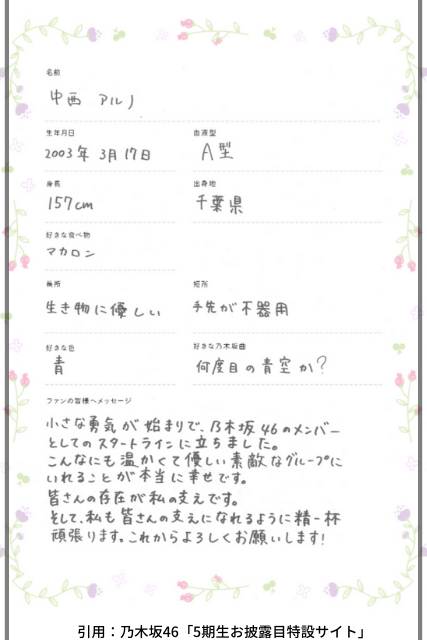 名前
中西 アルノ
生年月日
血液型
2003年 3月 17日
A型
身長
出身地
157cm
千葉県
好きな食べ物
マカロン
長所
短所
生き物に優しい
手先が不器用
好きな色
好きな乃木坂曲
青
何度目の青空か?
ファンの皆様へメッセージ
小さな勇気が始まりで、乃木坂46のメンバー
としてのスタートラインに立ちました。
こんなにも温かくて優しい素敵なグループに
いれることが本当に幸せです。
皆さんの存在が私の支えです。
そして、私も皆さんの支えになれるように精一杯
頑張ります。これからよろしくお願いします!
引用：乃木坂46「5期生お披露目特設サイト」